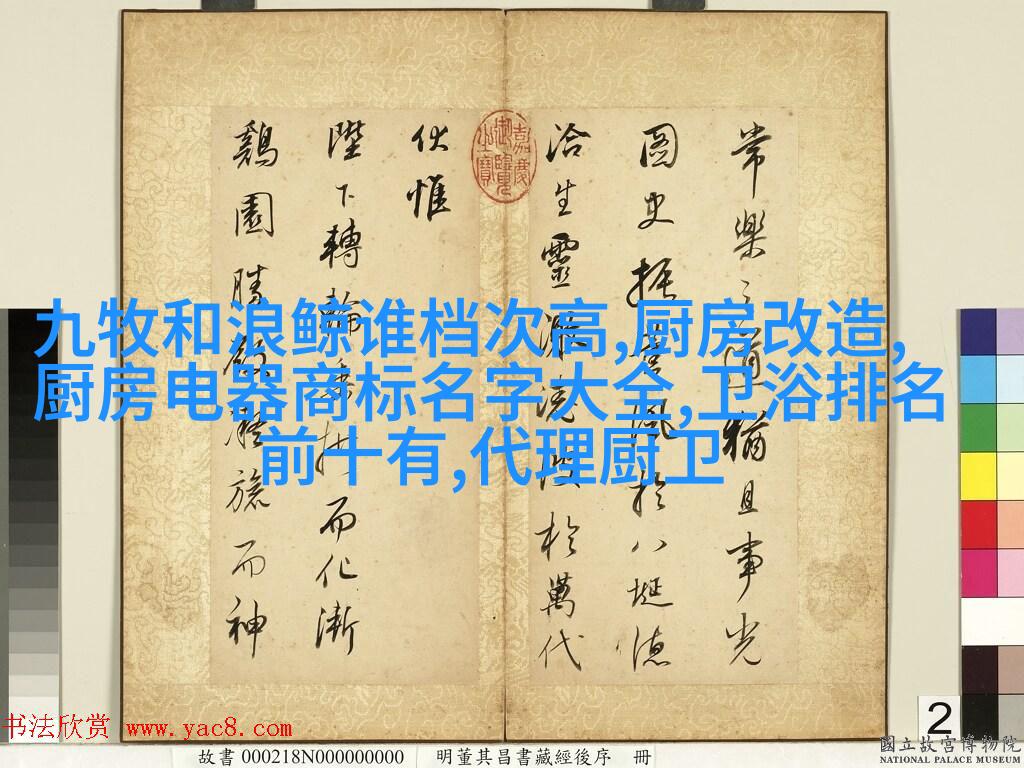 常樂之道猶且事光
圖史振風於八埏德
洽生靈於萬代
伏惟
陛下轉輪垂拱而化漸
鷄園勝而神
嘉慶御覽之寶
九牧和浪鲸谁档次高,厨房改造,
厨房电器商标名字大全,卫浴排名
前十有,代理厨卫
2
书法欣赏 www.yac8.com
故書 000218N000000000 明董其昌書藏經後序 冊
國立故宮博物院
NATIONAL PALACE MUSEUM